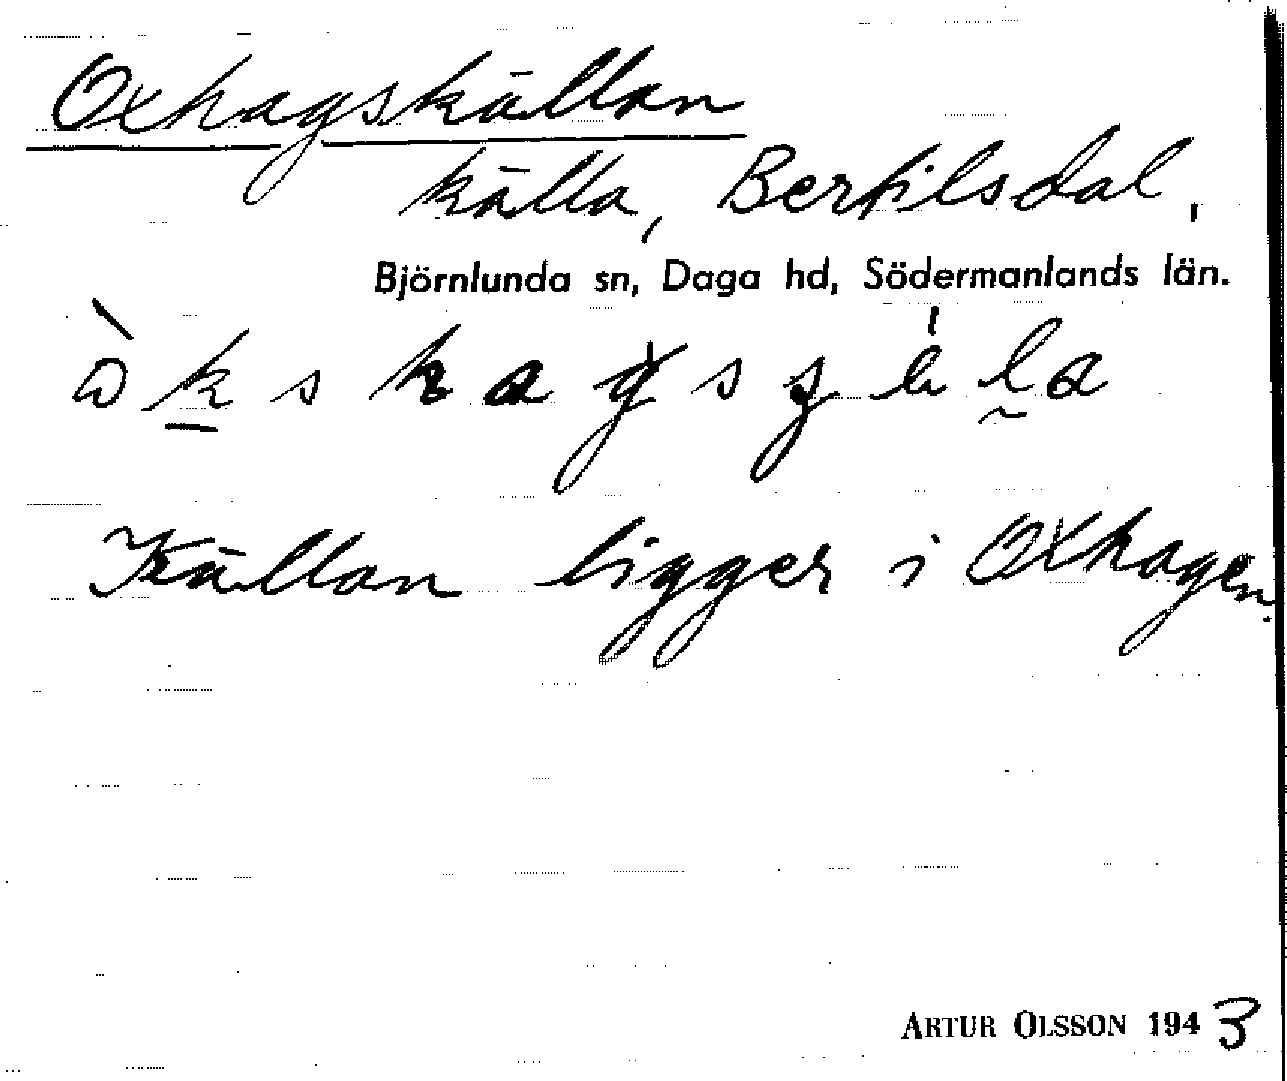 Oxhagskällan
källa, Bertilsdal,
Björnlunda sn, Daga hd, Södermanlands län.
Källan ligger i Oxhagen.
ARTUR OLSSON 1943